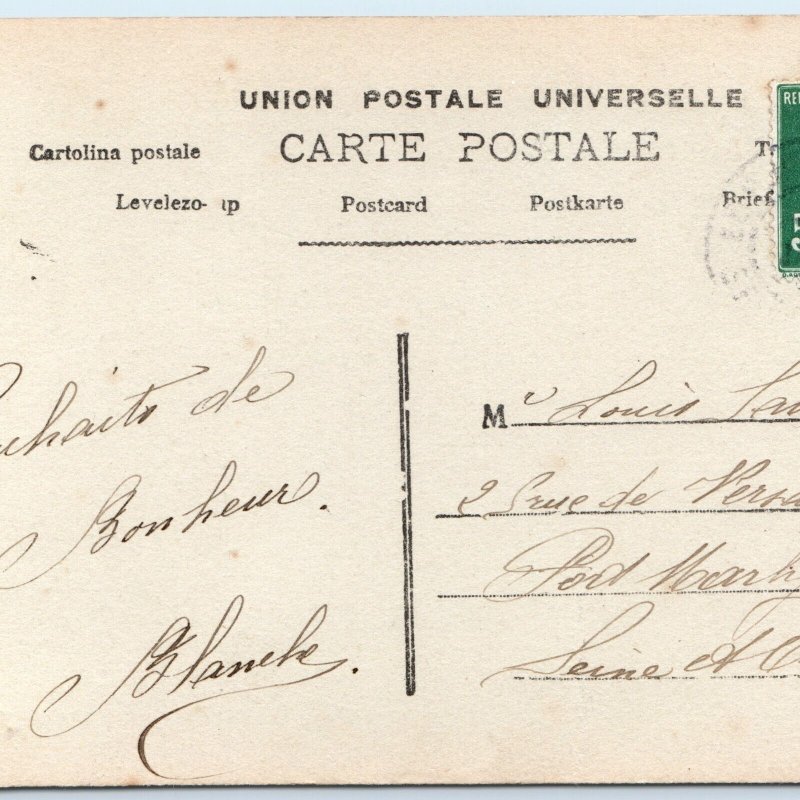 UNION POSTALE UNIVERSELLE
CARTE POSTALE
Cartolina postale
Levelezo- ap
Postcard
Postkarte
Brief
REP
5
ouhaits de
Bonheur.
Blanche.
Mr Louis
rue de Versa
Port Marly
Seine et O